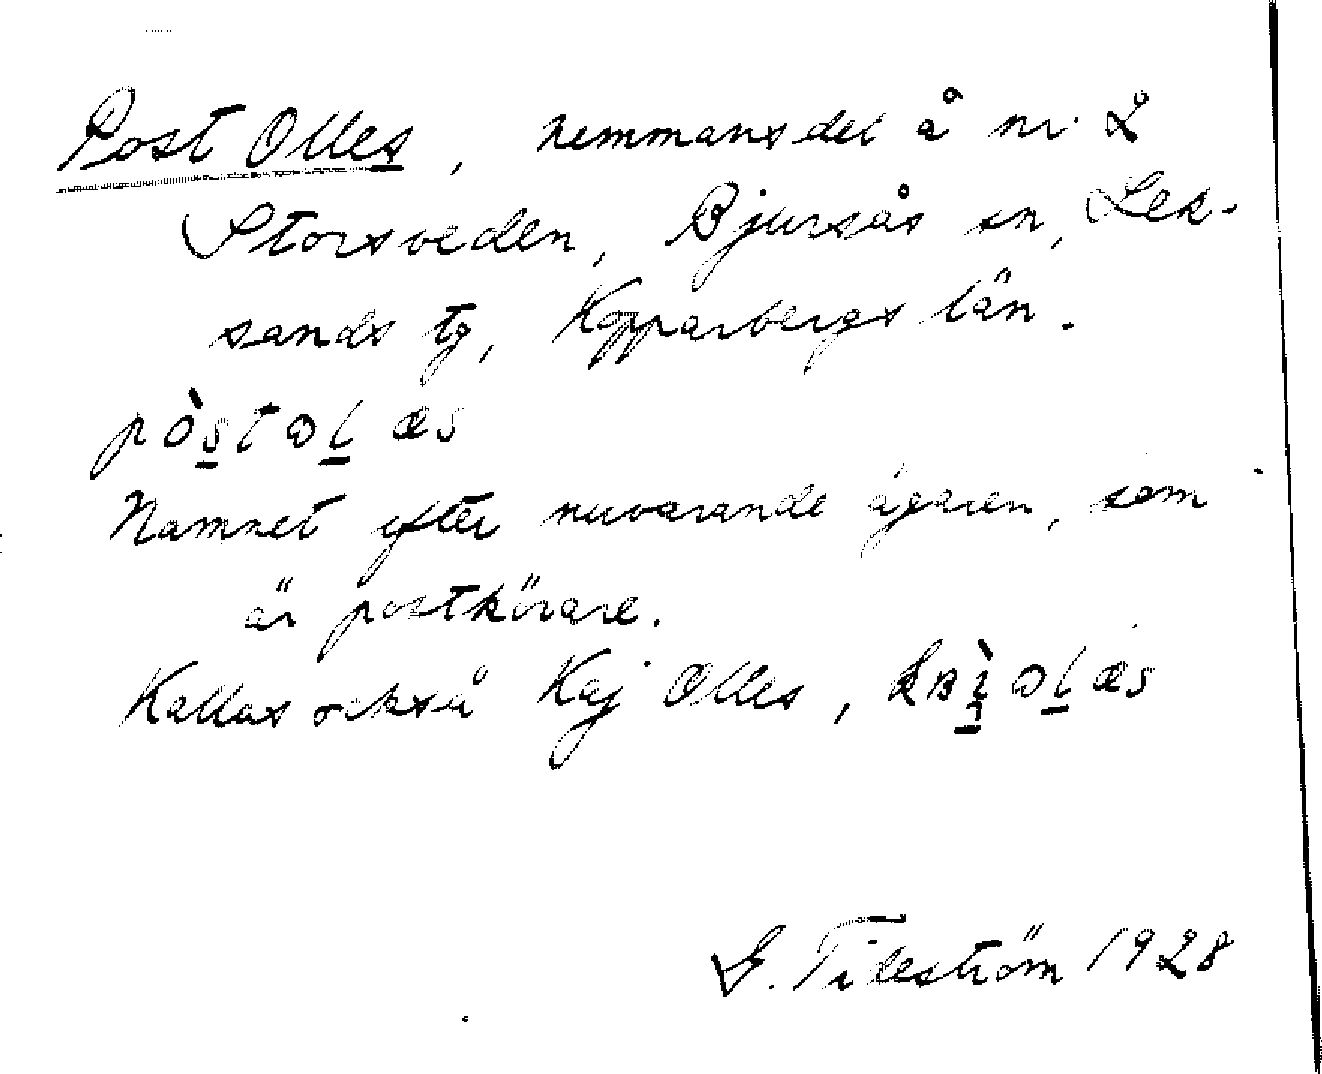 Post Olles, hemmansdel å nr 2
Storsveden, Bjursås sn, Lek-
sands tg, Kopparbergs län.
pòstɷlæs
Namnet efter nuvarande ägaren, som
är postkörare.
Kallas också Kaj Olles,
G. Tileström 1928